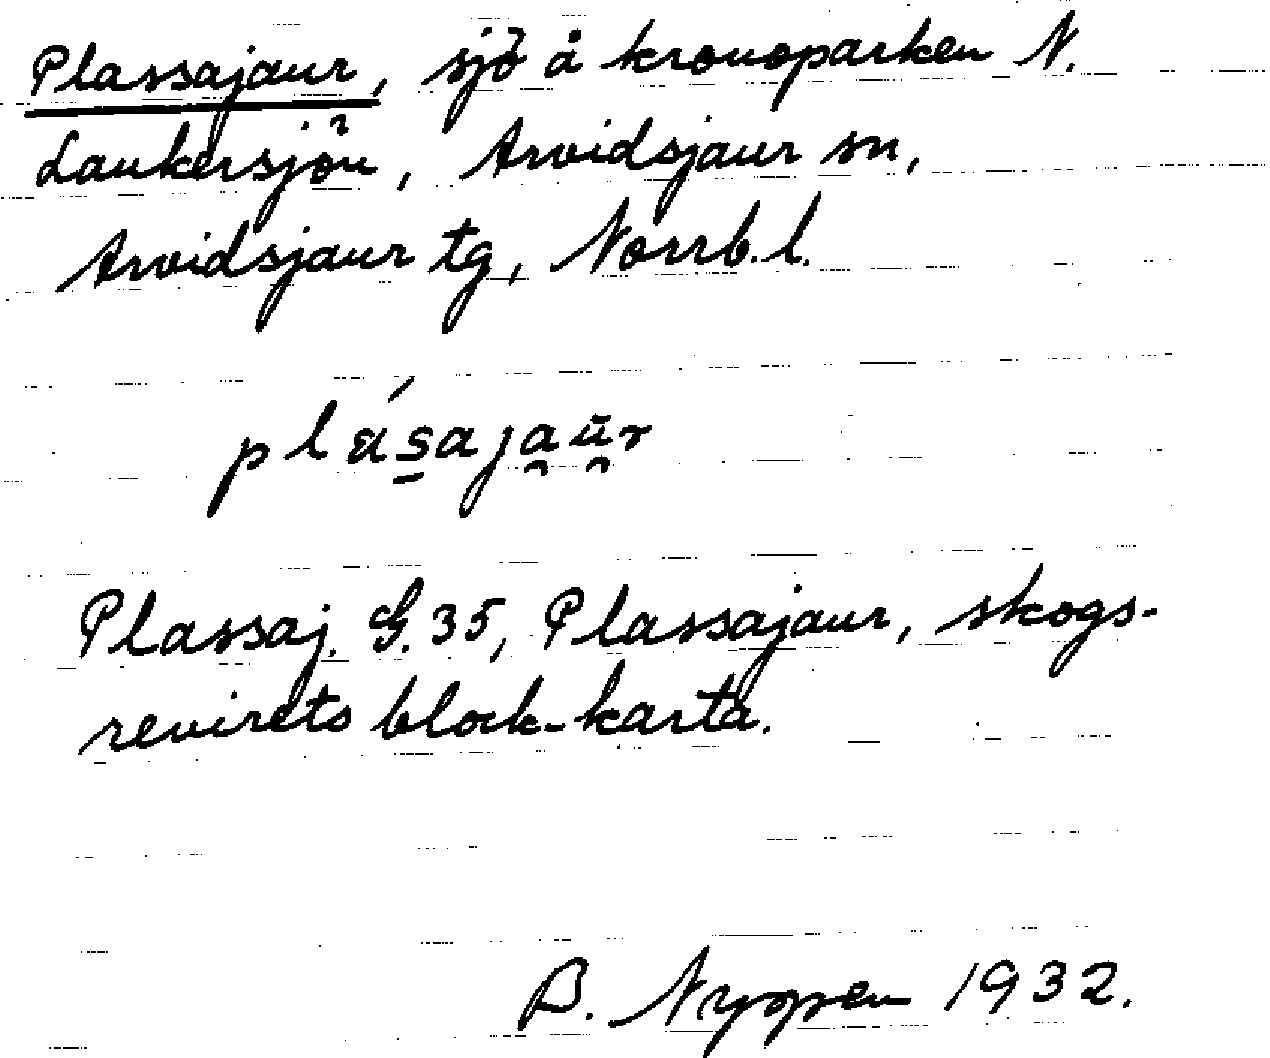 Plassajaur, sjö å kronoparken N.
Laukersjön, Arvidsjaur sn,
Arvidsjaur tg, Norrb. l.
plásajaūr
Plassaj. G. 35, Plassajaur, skogs-
revirets block-karta.
B. Nygren 1932.